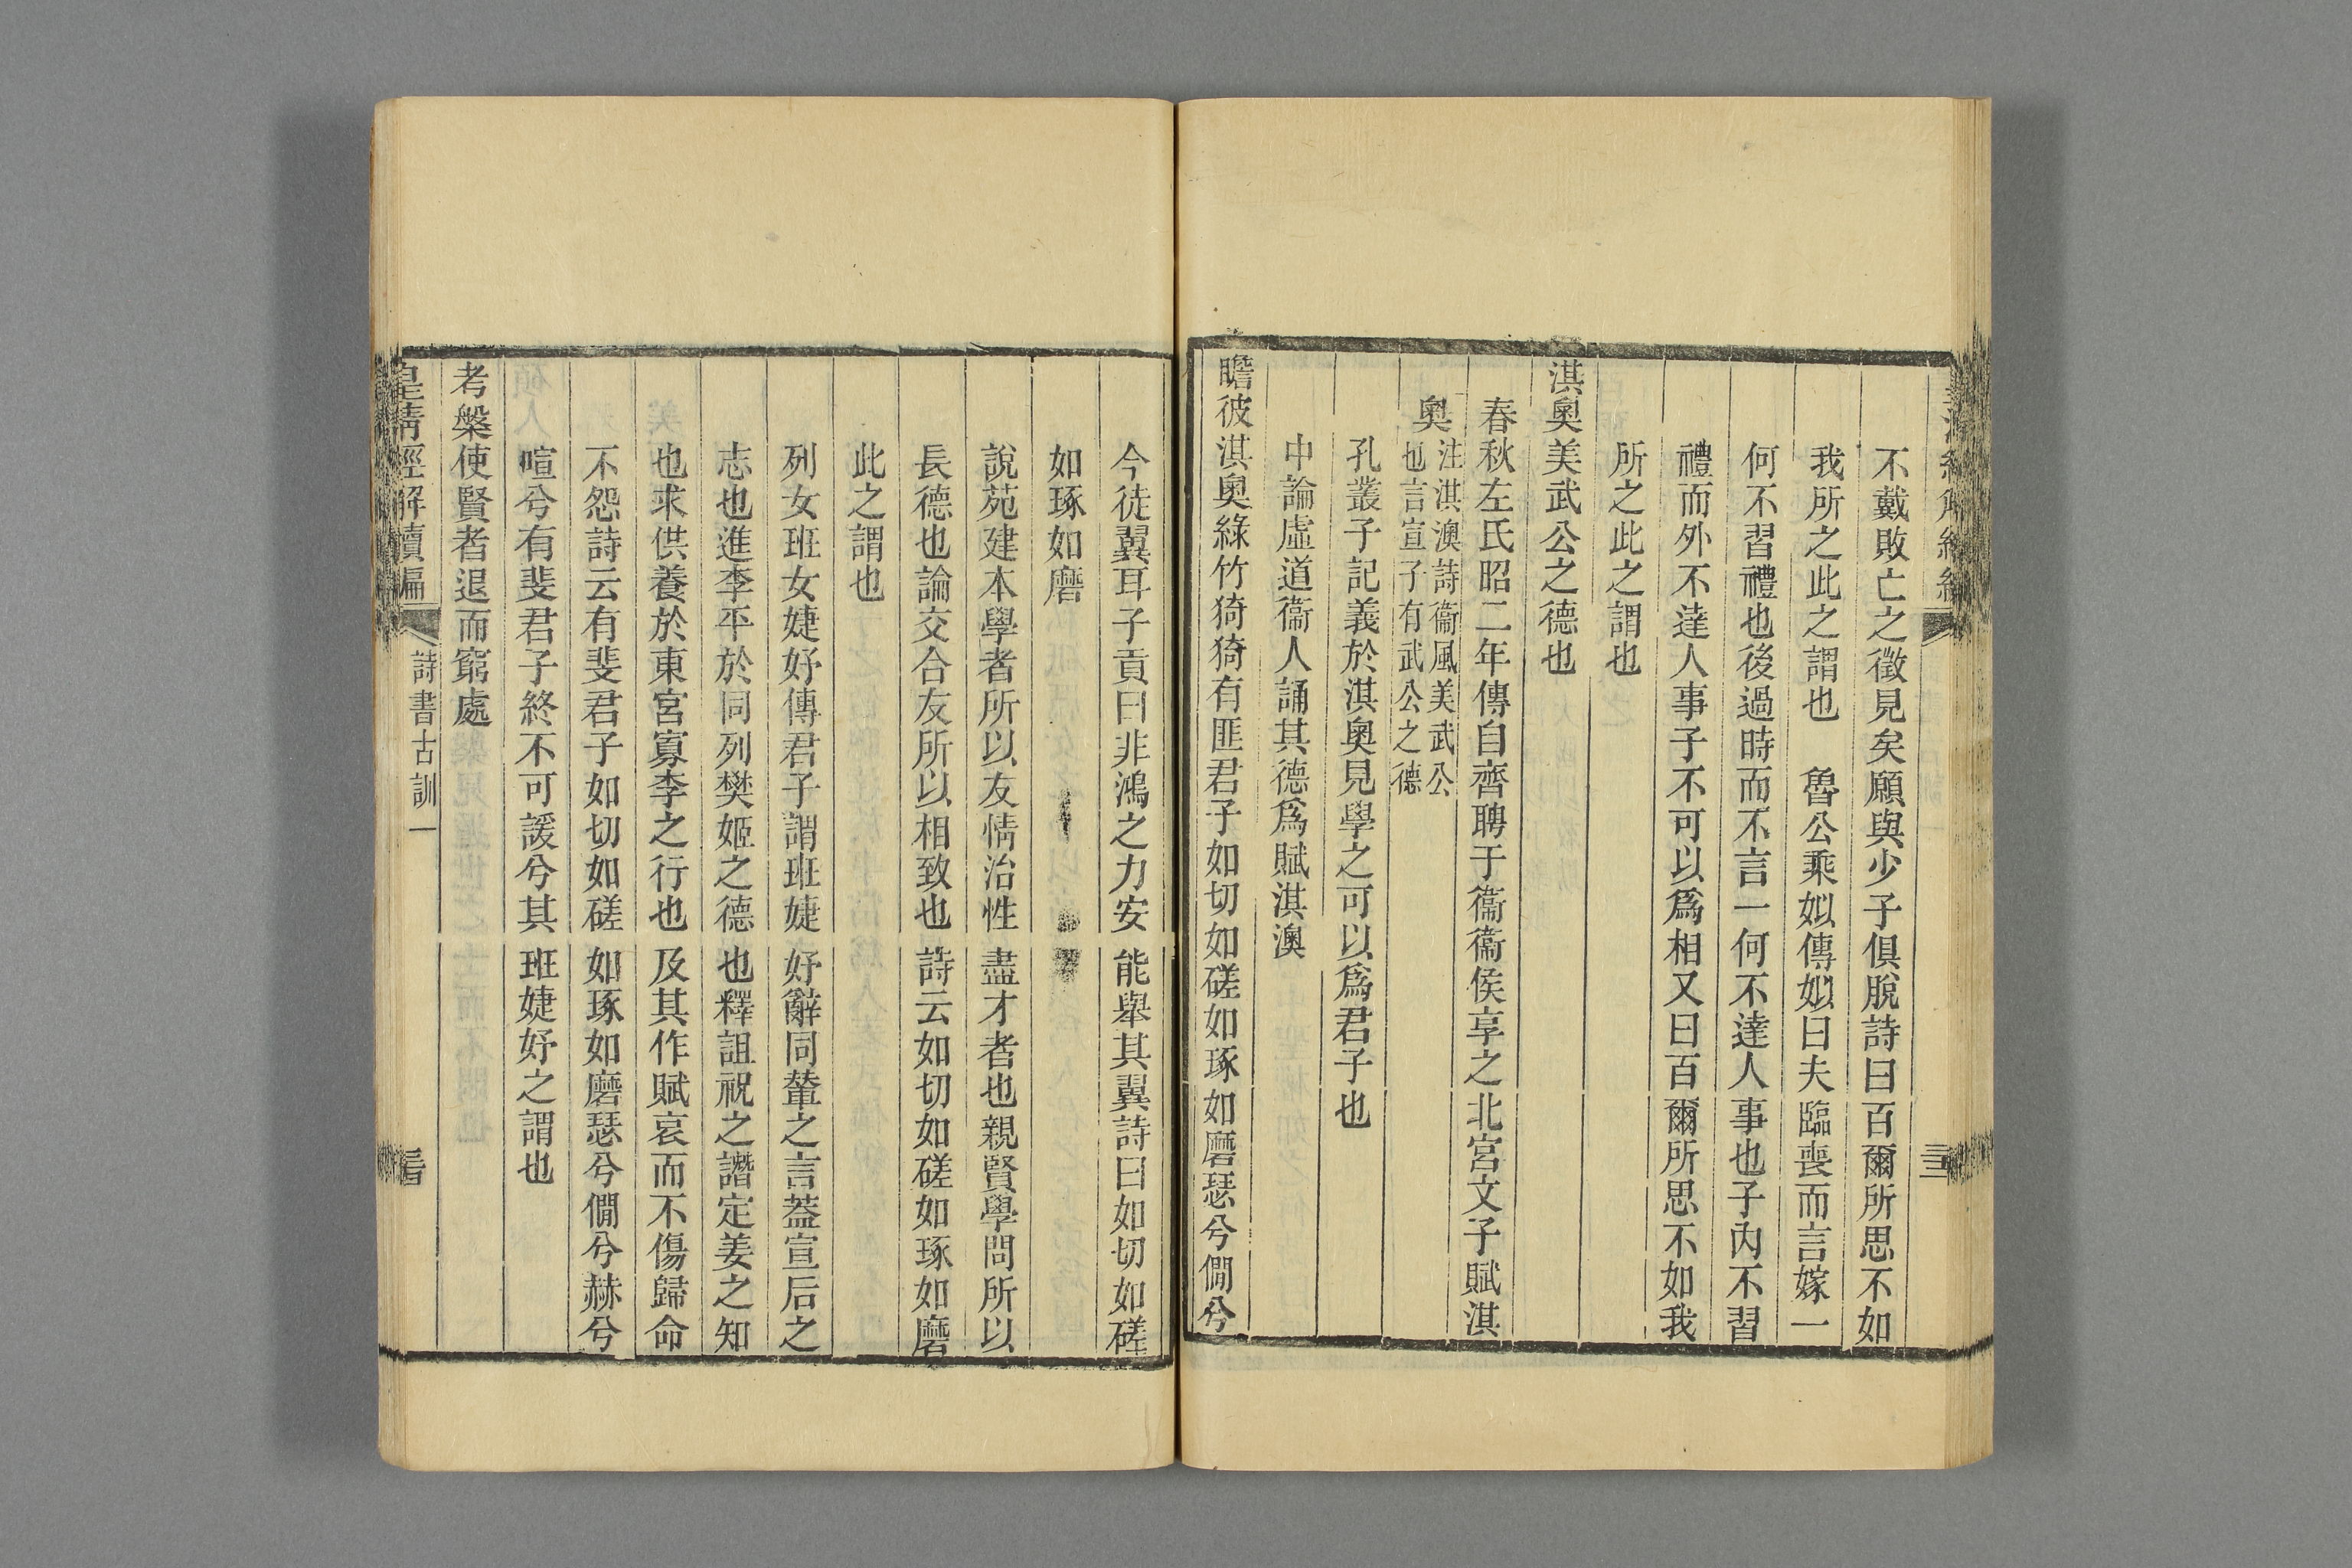 不戴敗亡之徵見矣願與少子俱脫詩曰百爾所思不如
我所之此之謂也　魯公乘姒傳姒曰夫臨喪而言嫁一
何不習禮也後過時而不言一何不達人事也子內不習
禮而外不達人事子不可以爲相又曰百爾所思不如我
所之此之謂也
淇奧美武公之德也
春秋左氏昭二年傳自齊聘于衞衞侯享之北宮文子賦淇
奧注淇澳詩衞風美武公
也言宣子有武公之德
孔叢子記義於淇奧見學之可以爲君子也
中論虛道衞人誦其德爲賦淇澳
瞻彼淇奧綠竹猗猗有匪君子如切如磋如琢如磨瑟兮僩兮
今徒翼耳子貢曰非鴻之力安能舉其翼詩曰如切如磋
如琢如磨
說苑建本學者所以友情治性盡才者也親賢學問所以
長德也論交合友所以相致也詩云如切如磋如琢如磨
此之謂也
列女班女婕妤傳君子謂班婕妤辭同輦之言蓋宣后之
志也進李平於同列樊姬之德也釋詛祝之譖定姜之知
也求供養於東宮寡李之行也及其作賦哀而不傷歸命
不怨詩云有斐君子如切如磋如琢如磨瑟兮僩兮赫兮
喧兮有斐君子終不可諼兮其班婕妤之謂也
考槃使賢者退而窮處
皇淸經解續編
詩書古訓一